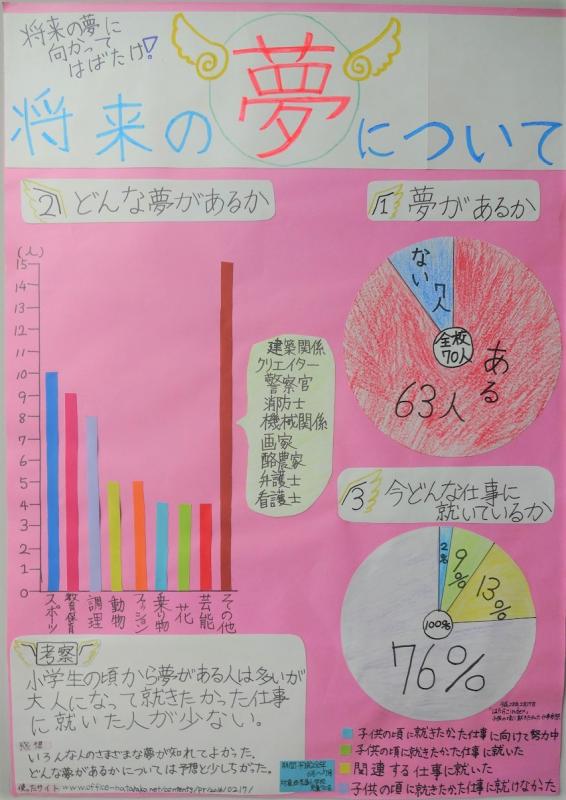 将来の夢に
向かって
はばたけ!
将来の夢について
2 どんな夢があるか
(人)
15
14
13
12
11
10
9
8
7
6
5
4
3
2
1
0
スポーツ
教育保育
調理
動物
ファッション
乗り物
花
芸能
その他
建築関係
クリエイター
警察官
消防士
機械関係
画家
酪農家
弁護士
看護士
1 夢があるか
ない 7人
全校
70人
ある
63人
3 今どんな仕事に
就いているか
2%
9%
13%
100%
76%
子供の頃に就きたかた仕事に向けて努力中
子供の頃に就きたかた仕事に就いた
関連する仕事に就いた
子供の頃に就きたかた仕事に就けなかた
考察
小学生の頃から夢がある人は多いが
大人になって就きたかった仕事
に就いた人が少ない。
感想
いろんな人のさまざまな夢が知れてよかった。
どんな夢があるかについては予想と少しちがった。
使ったサイト